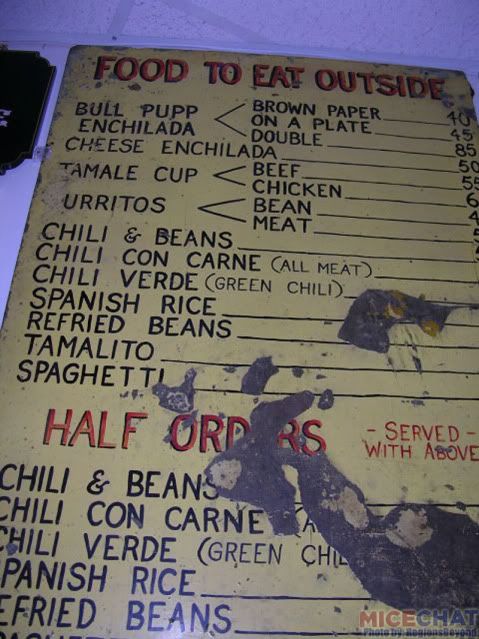 FOOD TO EAT OUTSIDE
BULL PUPP ENCHILADA < BROWN PAPER 40
ON A PLATE 45
DOUBLE 85
CHEESE ENCHILADA 50
TAMALE CUP < BEEF 55
CHICKEN 6
URRITOS < BEAN 4
MEAT
CHILI & BEANS
CHILI CON CARNE (ALL MEAT)
CHILI VERDE (GREEN CHILI)
SPANISH RICE
REFRIED BEANS
TAMALITO
SPAGHETTI
HALF ORD RS - SERVED -
WITH ABOVE
CHILI & BEANS
CHILI CON CARNE (A
CHILI VERDE (GREEN CHIL
PANISH RICE
EFRIED BEANS
MICECHAT
Photo by: RegionsBeyond